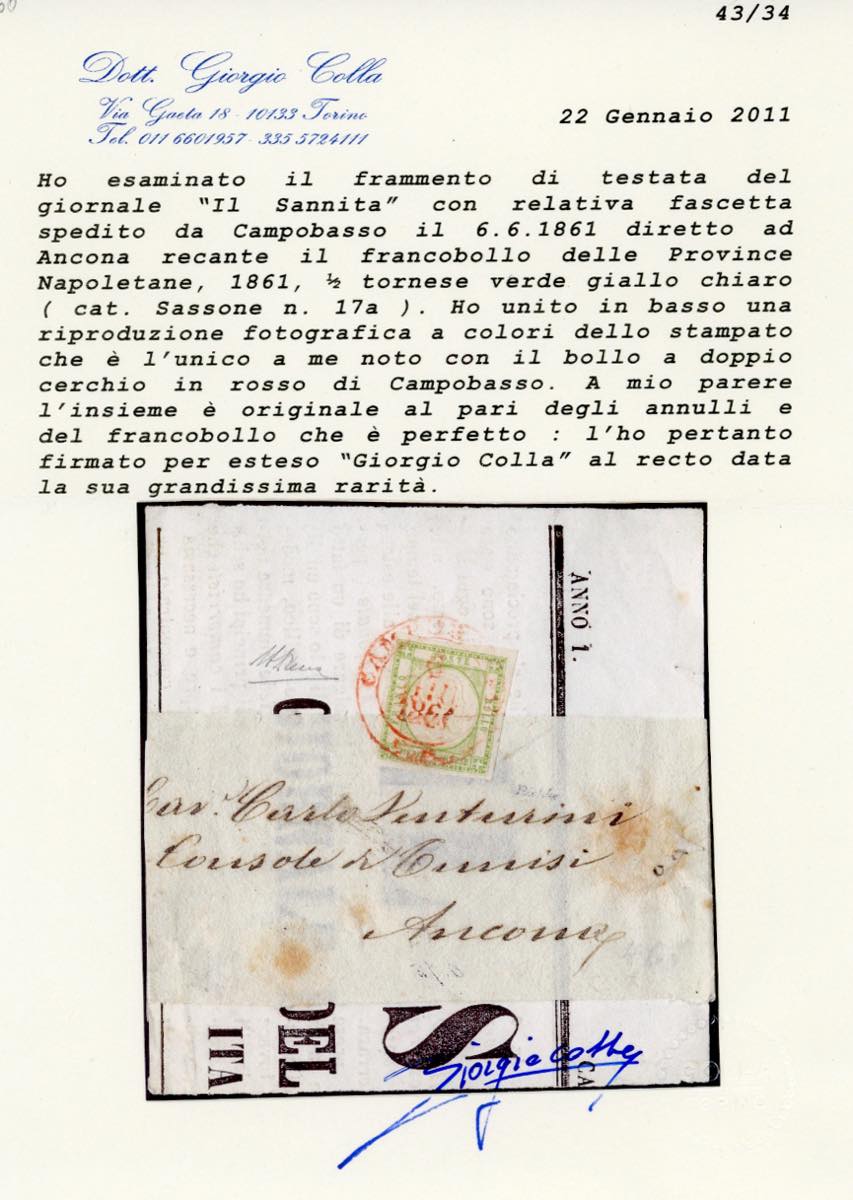 43/34
Dott. Giorgio Colla
Via Gaeta 18 - 10133 Torino
Tel. 011 6601957 - 335 5724111
22 Gennaio 2011
Ho esaminato il frammento di testata del
giornale "Il Sannita" con relativa fascetta
spedito da Campobasso il 6.6.1861 diretto ad
Ancona recante il francobollo delle Province
Napoletane, 1861, ½ tornese verde giallo chiaro
( cat. Sassone n. 17a ). Ho unito in basso una
riproduzione fotografica a colori dello stampato
che è l'unico a me noto con il bollo a doppio
cerchio in rosso di Campobasso. A mio parere
l'insieme è originale al pari degli annulli e
del francobollo che è perfetto : l'ho pertanto
firmato per esteso "Giorgio Colla" al recto data
la sua grandissima rarità.
ANNO 1.
GIU
1861
BOLLO
Carlo Venturini
Console di Tunisi
Ancona
DEL
ITA
S
CA
Giorgio Colla